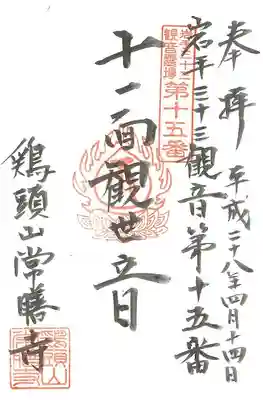 奉拝 平成二十八年四月十四日
岩手三十三観音第十五番
第十五番
十一面観世音
鶏頭山常勝寺